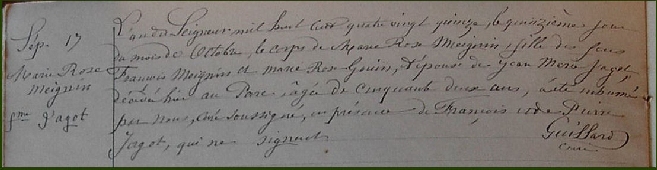 Sép. 17
Marie Rose
Meignin
fme Jagot
L'an du Seigneur mil huit cent quatre vingt quinze, le quinzième jour
du mois de Octobre, le corps de Marie Rose Meignin, fille des feus
François Meignin et Marie Rose Gouin, épouse de Jean Marie Jagot
décédée hier au Bore, âgée de cinquante deux ans, a été inhumé
par nous, Curé soussigné, en présence de François et de Pierre
Jagot, qui ne signent
Guillard
Curé